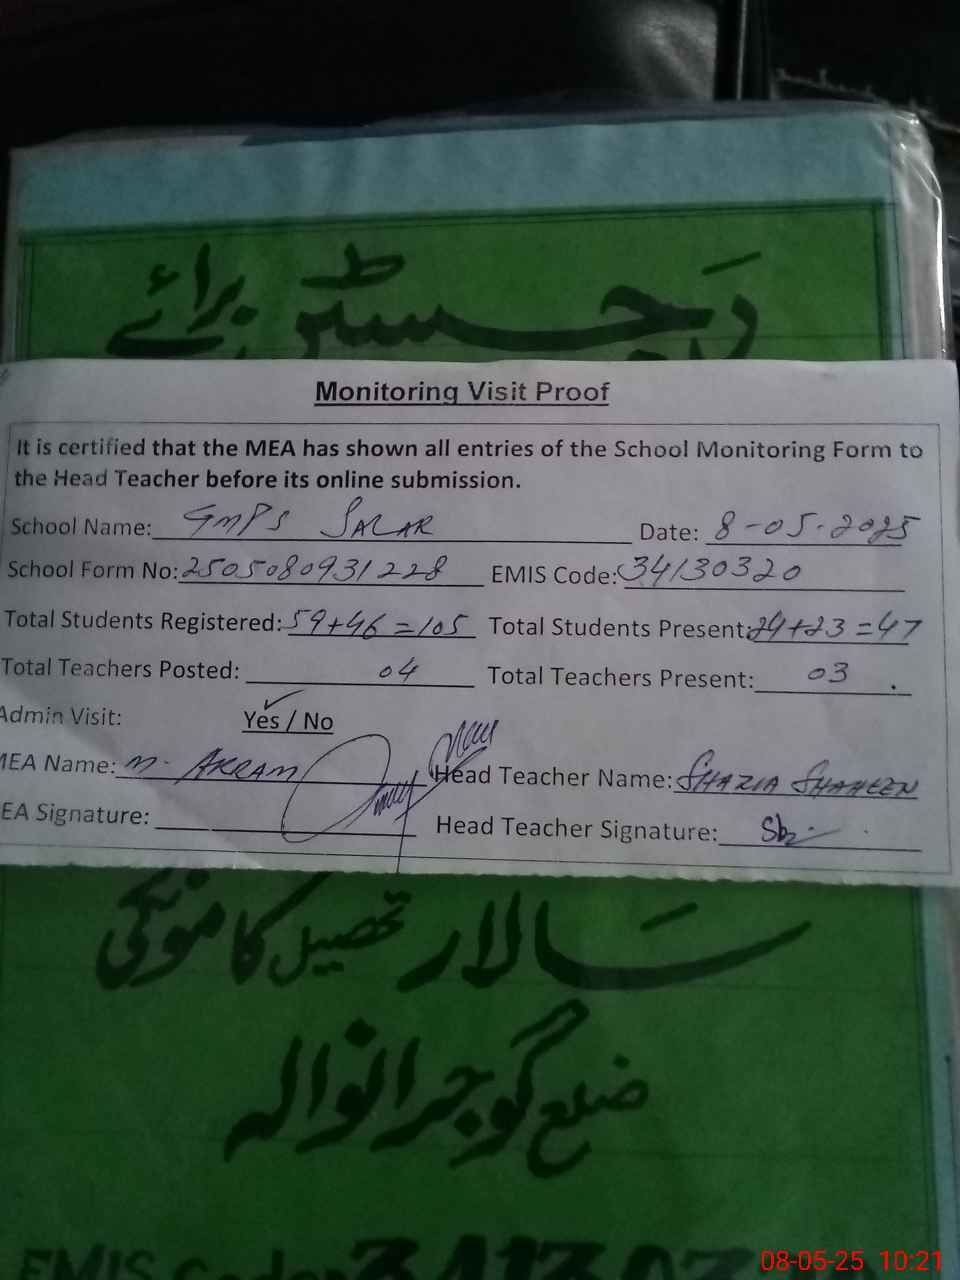 رجسٹر برائے
Monitoring Visit Proof
It is certified that the MEA has shown all entries of the School Monitoring Form to
the Head Teacher before its online submission.
School Name: GMPS SALAR Date: 8-05-2025
School Form No: 2505080931228 EMIS Code: 34130320
Total Students Registered: 59+46=105 Total Students Present: 24+23=47
Total Teachers Posted: 04 Total Teachers Present: 03
Admin Visit: Yes / No
MEA Name: M. AKRAM Head Teacher Name: SHAZIA SHAHEEN
EA Signature: Head Teacher Signature:
سالار تحصیل کامونکی
ضلع گوجرانوالہ
EMIS Code
08-05-25 10:21